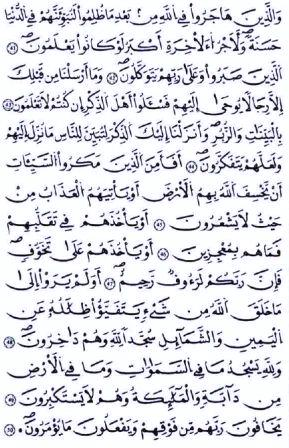 وَالَّذِينَ هَاجَرُوا فِي اللَّهِ مِنْ بَعْدِ مَا ظُلِمُوا لَنُبَوِّئَنَّهُمْ فِي الدُّنْيَا
حَسَنَةً وَلَأَجْرُ الْآخِرَةِ أَكْبَرُ لَوْ كَانُوا يَعْلَمُونَ ٤١
الَّذِينَ صَبَرُوا وَعَلَى رَبِّهِمْ يَتَوَكَّلُونَ ٤٢ وَمَا أَرْسَلْنَا مِنْ قَبْلِكَ
إِلَّا رِجَالًا يُوحَى إِلَيْهِمْ فَسْئَلُوا أَهْلَ الذِّكْرِ إِنْ كُنْتُمْ لَا تَعْلَمُونَ ٤٣
بِالْبَيِّنَاتِ وَالزُّبُرِ وَأَنْزَلْنَا إِلَيْكَ الذِّكْرَ لِتُبَيِّنَ لِلنَّاسِ مَا نُزِّلَ إِلَيْهِمْ
وَلَعَلَّهُمْ يَتَفَكَّرُونَ ٤٤ أَفَأَمِنَ الَّذِينَ مَكَرُوا السَّيِّئَاتِ
أَنْ يَخْسِفَ اللَّهُ بِهِمُ الْأَرْضَ أَوْ يَأْتِيَهُمُ الْعَذَابُ مِنْ
حَيْثُ لَا يَشْعُرُونَ ٤٥ أَوْ يَأْخُذَهُمْ فِي تَقَلُّبِهِمْ
فَمَا هُمْ بِمُعْجِزِينَ ٤٦ أَوْ يَأْخُذَهُمْ عَلَى تَخَوُّفٍ
فَإِنَّ رَبَّكُمْ لَرَءُوفٌ رَحِيمٌ ٤٧ أَوَلَمْ يَرَوْا إِلَى
مَا خَلَقَ اللَّهُ مِنْ شَيْءٍ يَتَفَيَّؤُا ظِلَالُهُ عَنِ
الْيَمِينِ وَالشَّمَائِلِ سُجَّدًا لِلَّهِ وَهُمْ دَاخِرُونَ ٤٨
وَلِلَّهِ يَسْجُدُ مَا فِي السَّمَاوَاتِ وَمَا فِي الْأَرْضِ
مِنْ دَابَّةٍ وَالْمَلَائِكَةُ وَهُمْ لَا يَسْتَكْبِرُونَ ٤٩
يَخَافُونَ رَبَّهُمْ مِنْ فَوْقِهِمْ وَيَفْعَلُونَ مَا يُؤْمَرُونَ ٥٠